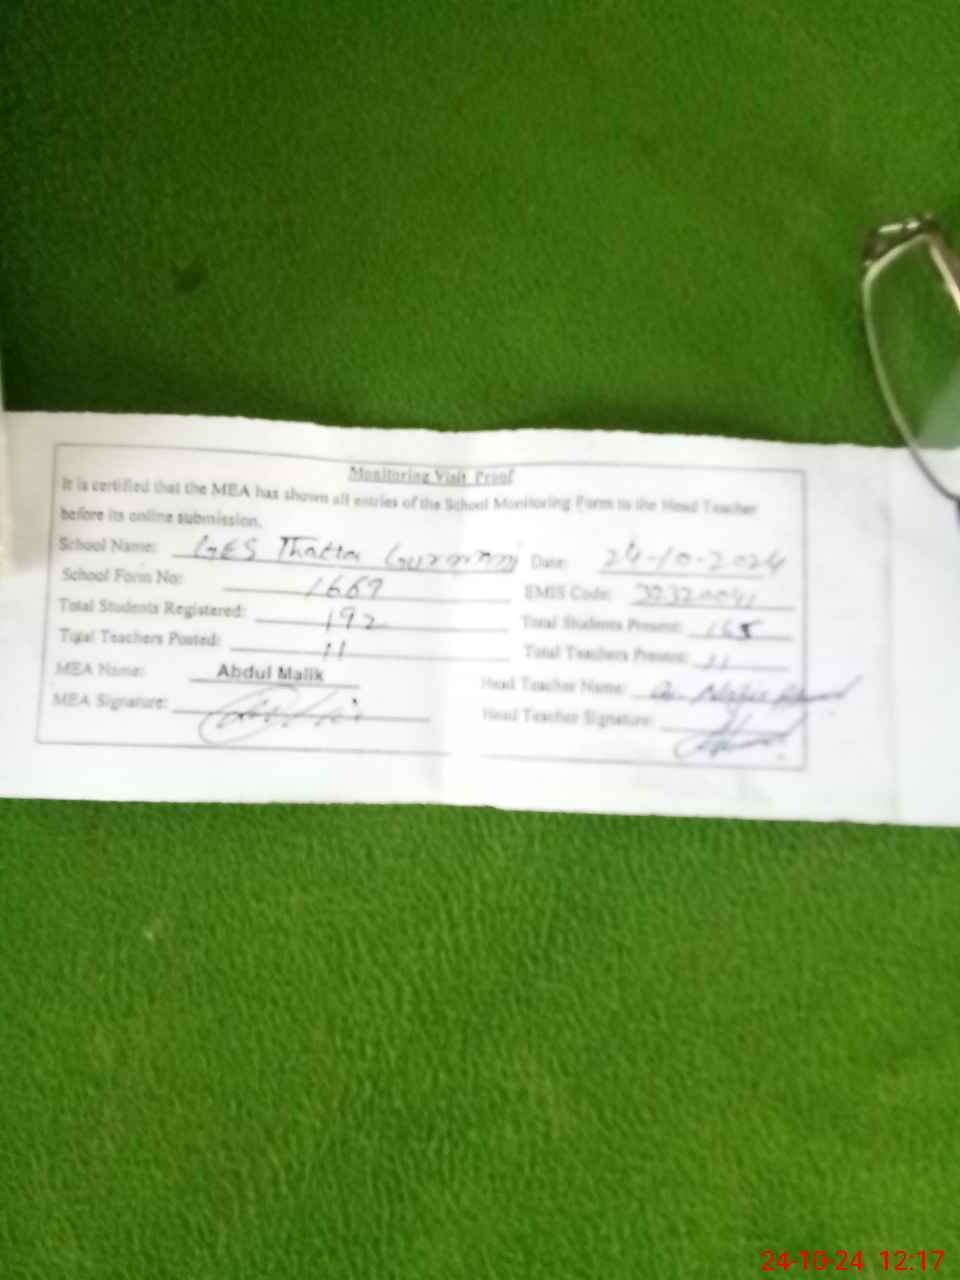 Monitoring Visit Proof
It is certified that the MEA has shown all entries of the School Monitoring Form to the Head Teacher
before its online submission.
School Name: GES Thatta Gurmani Date: 24-10-2024
School Form No: 1667 EMIS Code:
Total Students Registered: 192 Total Students Present: 165
Total Teachers Posted: 11 Total Teachers Present: 11
MEA Name: Abdul Malik Head Teacher Name:
MEA Signature: Head Teacher Signature:
24-10-24 12:17